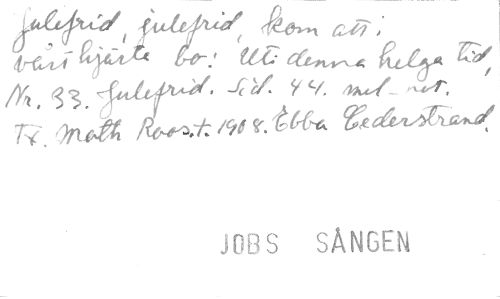 Julefrid, julefrid, kom att i
vårt hjärta bo! Uti denna helga tid,
Nr. 33. Julefrid. Sid. 44. mel-not.
Tx. Math Roos.t. 1908. Ebba Cederstrand.
JOBS SÅNGEN